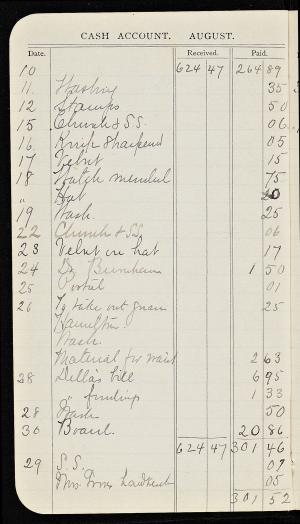 CASH ACCOUNT. AUGUST.
Date. Received. Paid.
10 624 47 264 89
11 Washing 35
12 Stamps 50
15 Church & S.S. 06
16 Knife sharpened 05
17 Velvet 15
18 Watch mended 75
" Hat 20
19 Wash. 25
22 Church & SS 06
23 Velvet on hat 17
24 Dr Burnham 1 50
25 Postal 01
26 To take out 25
Hamilton.
Wash.
Material for waist 2 63
28 Della's bill 6 95
" findings 1 33
28 Wash 50
30 Board. 20 86
624 47 301 46
29 S.S. 01
Mrs. 05
301 52